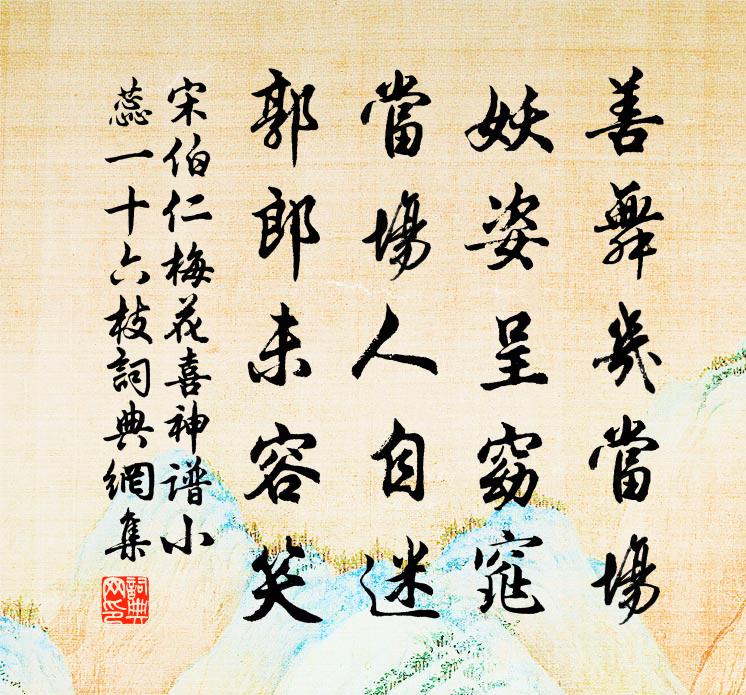 善舞幾當場
妖姿呈窈窕
當場人自迷
郭郎未容笑
宋伯仁梅花喜神谱小
蕊一十六枝詞典網集
詞典网印